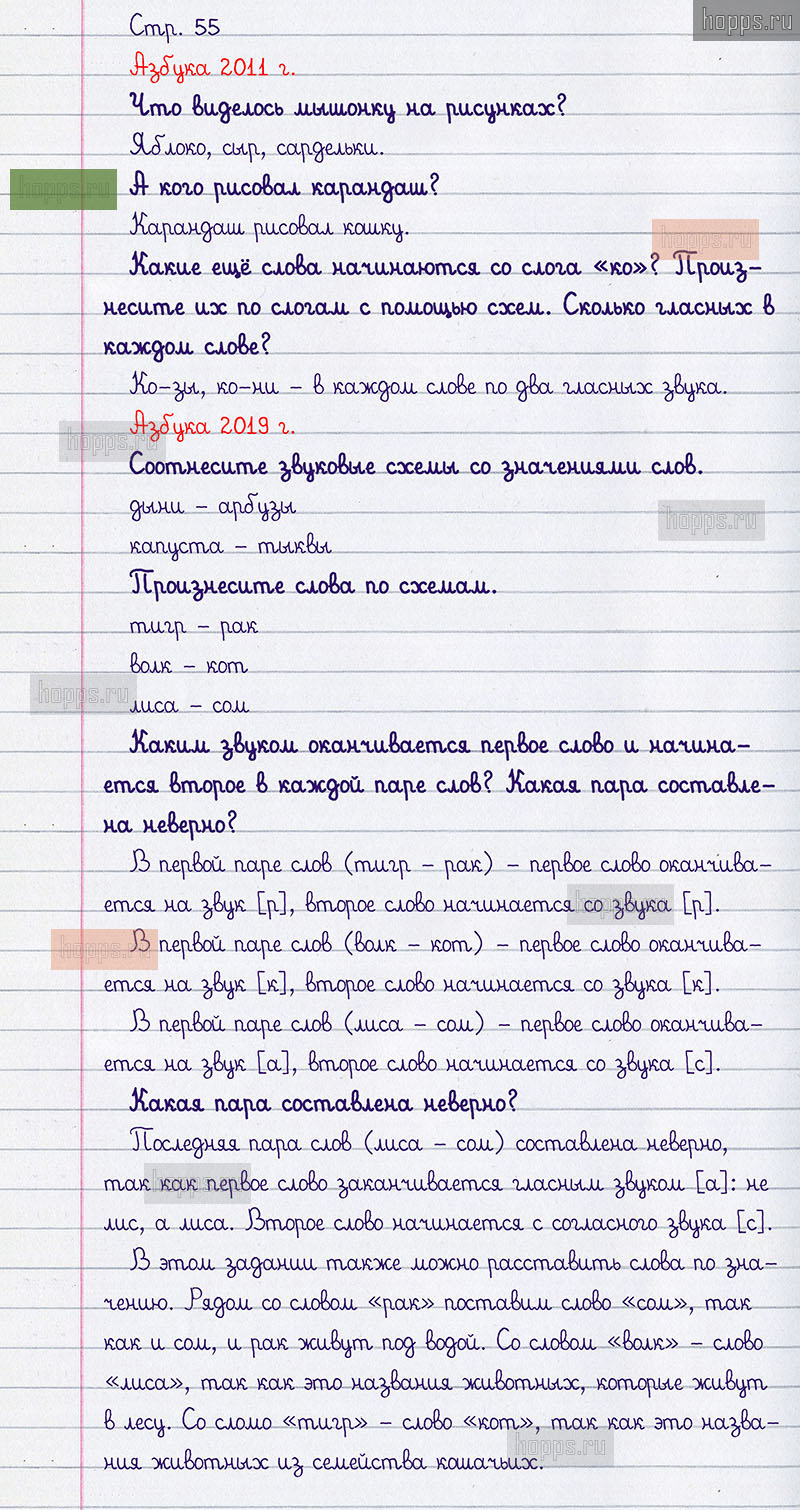 hopps.ru
Стр. 55
Азбука 2011 г.
Что виделось мышонку на рисунках?
Яблоко, сыр, сардельки.
hopps.ru
А кого рисовал карандаш?
Карандаш рисовал кошку.
hopps.ru
Какие ещё слова начинаются со слога «ко»? Произ-
несите их по слогам с помощью схем. Сколько гласных в
каждом слове?
Ко-зы, ко-ни - в каждом слове по два гласных звука.
Азбука 2019 г.
hopps.ru
Соотнесите звуковые схемы со значениями слов.
дыни - арбузы
hopps.ru
капуста - тыквы
Произнесите слова по схемам.
тигр - рак
волк - кот
hopps.ru
лиса - сом
Каким звуком оканчивается первое слово и начина-
ется второе в каждой паре слов? Какая пара составле-
на неверно?
В первой паре слов (тигр - рак) - первое слово оканчива-
ется на звук [р], второе слово начинается со звука [р].
hopps.ru
В первой паре слов (волк - кот) - первое слово оканчива-
hopps.ru
ется на звук [к], второе слово начинается со звука [к].
В первой паре слов (лиса - сом) - первое слово оканчива-
ется на звук [а], второе слово начинается со звука [с].
Какая пара составлена неверно?
Последняя пара слов (лиса - сом) составлена неверно,
так как первое слово заканчивается гласным звуком [а]: не
hopps.ru
лис, а лиса. Второе слово начинается с согласного звука [с].
В этом задании также можно расставить слова по зна-
чению. Рядом со словом «рак» поставим слово «сом», так
как и сом, и рак живут под водой. Со словом «волк» - слово
«лиса», так как это названия животных, которые живут
в лесу. Со сломо «тигр» - слово «кот», так как это назва-
ния животных из семейства кошачьих.
hopps.ru